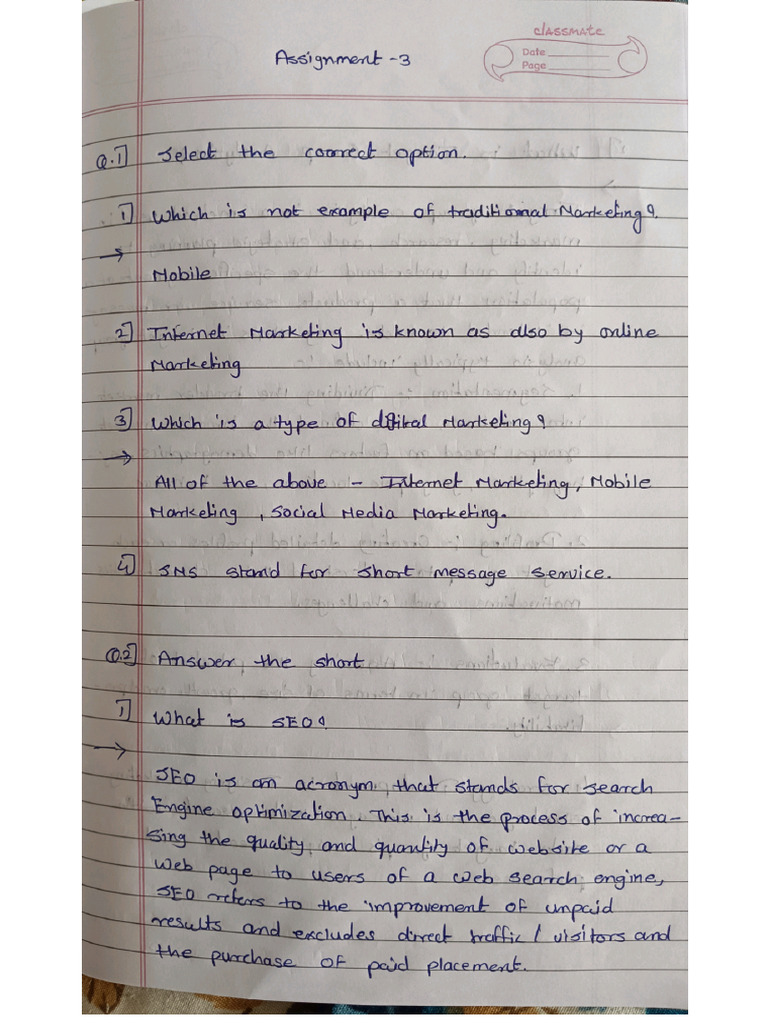 classmate
Date
Page
Assignment - 3
Q.1] Select the coorrect option.
1] Which is not example of traditional Marketing?
→
Mobile
2] Internet Marketing is known as also by online
Marketing
3] Which is a type of digital Marketing?
→
All of the above - Internet Marketing, Mobile
Marketing, Social Media Marketing.
4] SMS stand for short message service.
Q.2] Answer the short
1] What is SEO?
→
SEO is an acronym that stands for search
Engine optimization. This is the process of increa-
sing the quality and quantity of website or a
web page to users of a web search engine,
SEO refers to the improvement of unpaid
results and excludes direct traffic / visitors and
the purchase of paid placement.